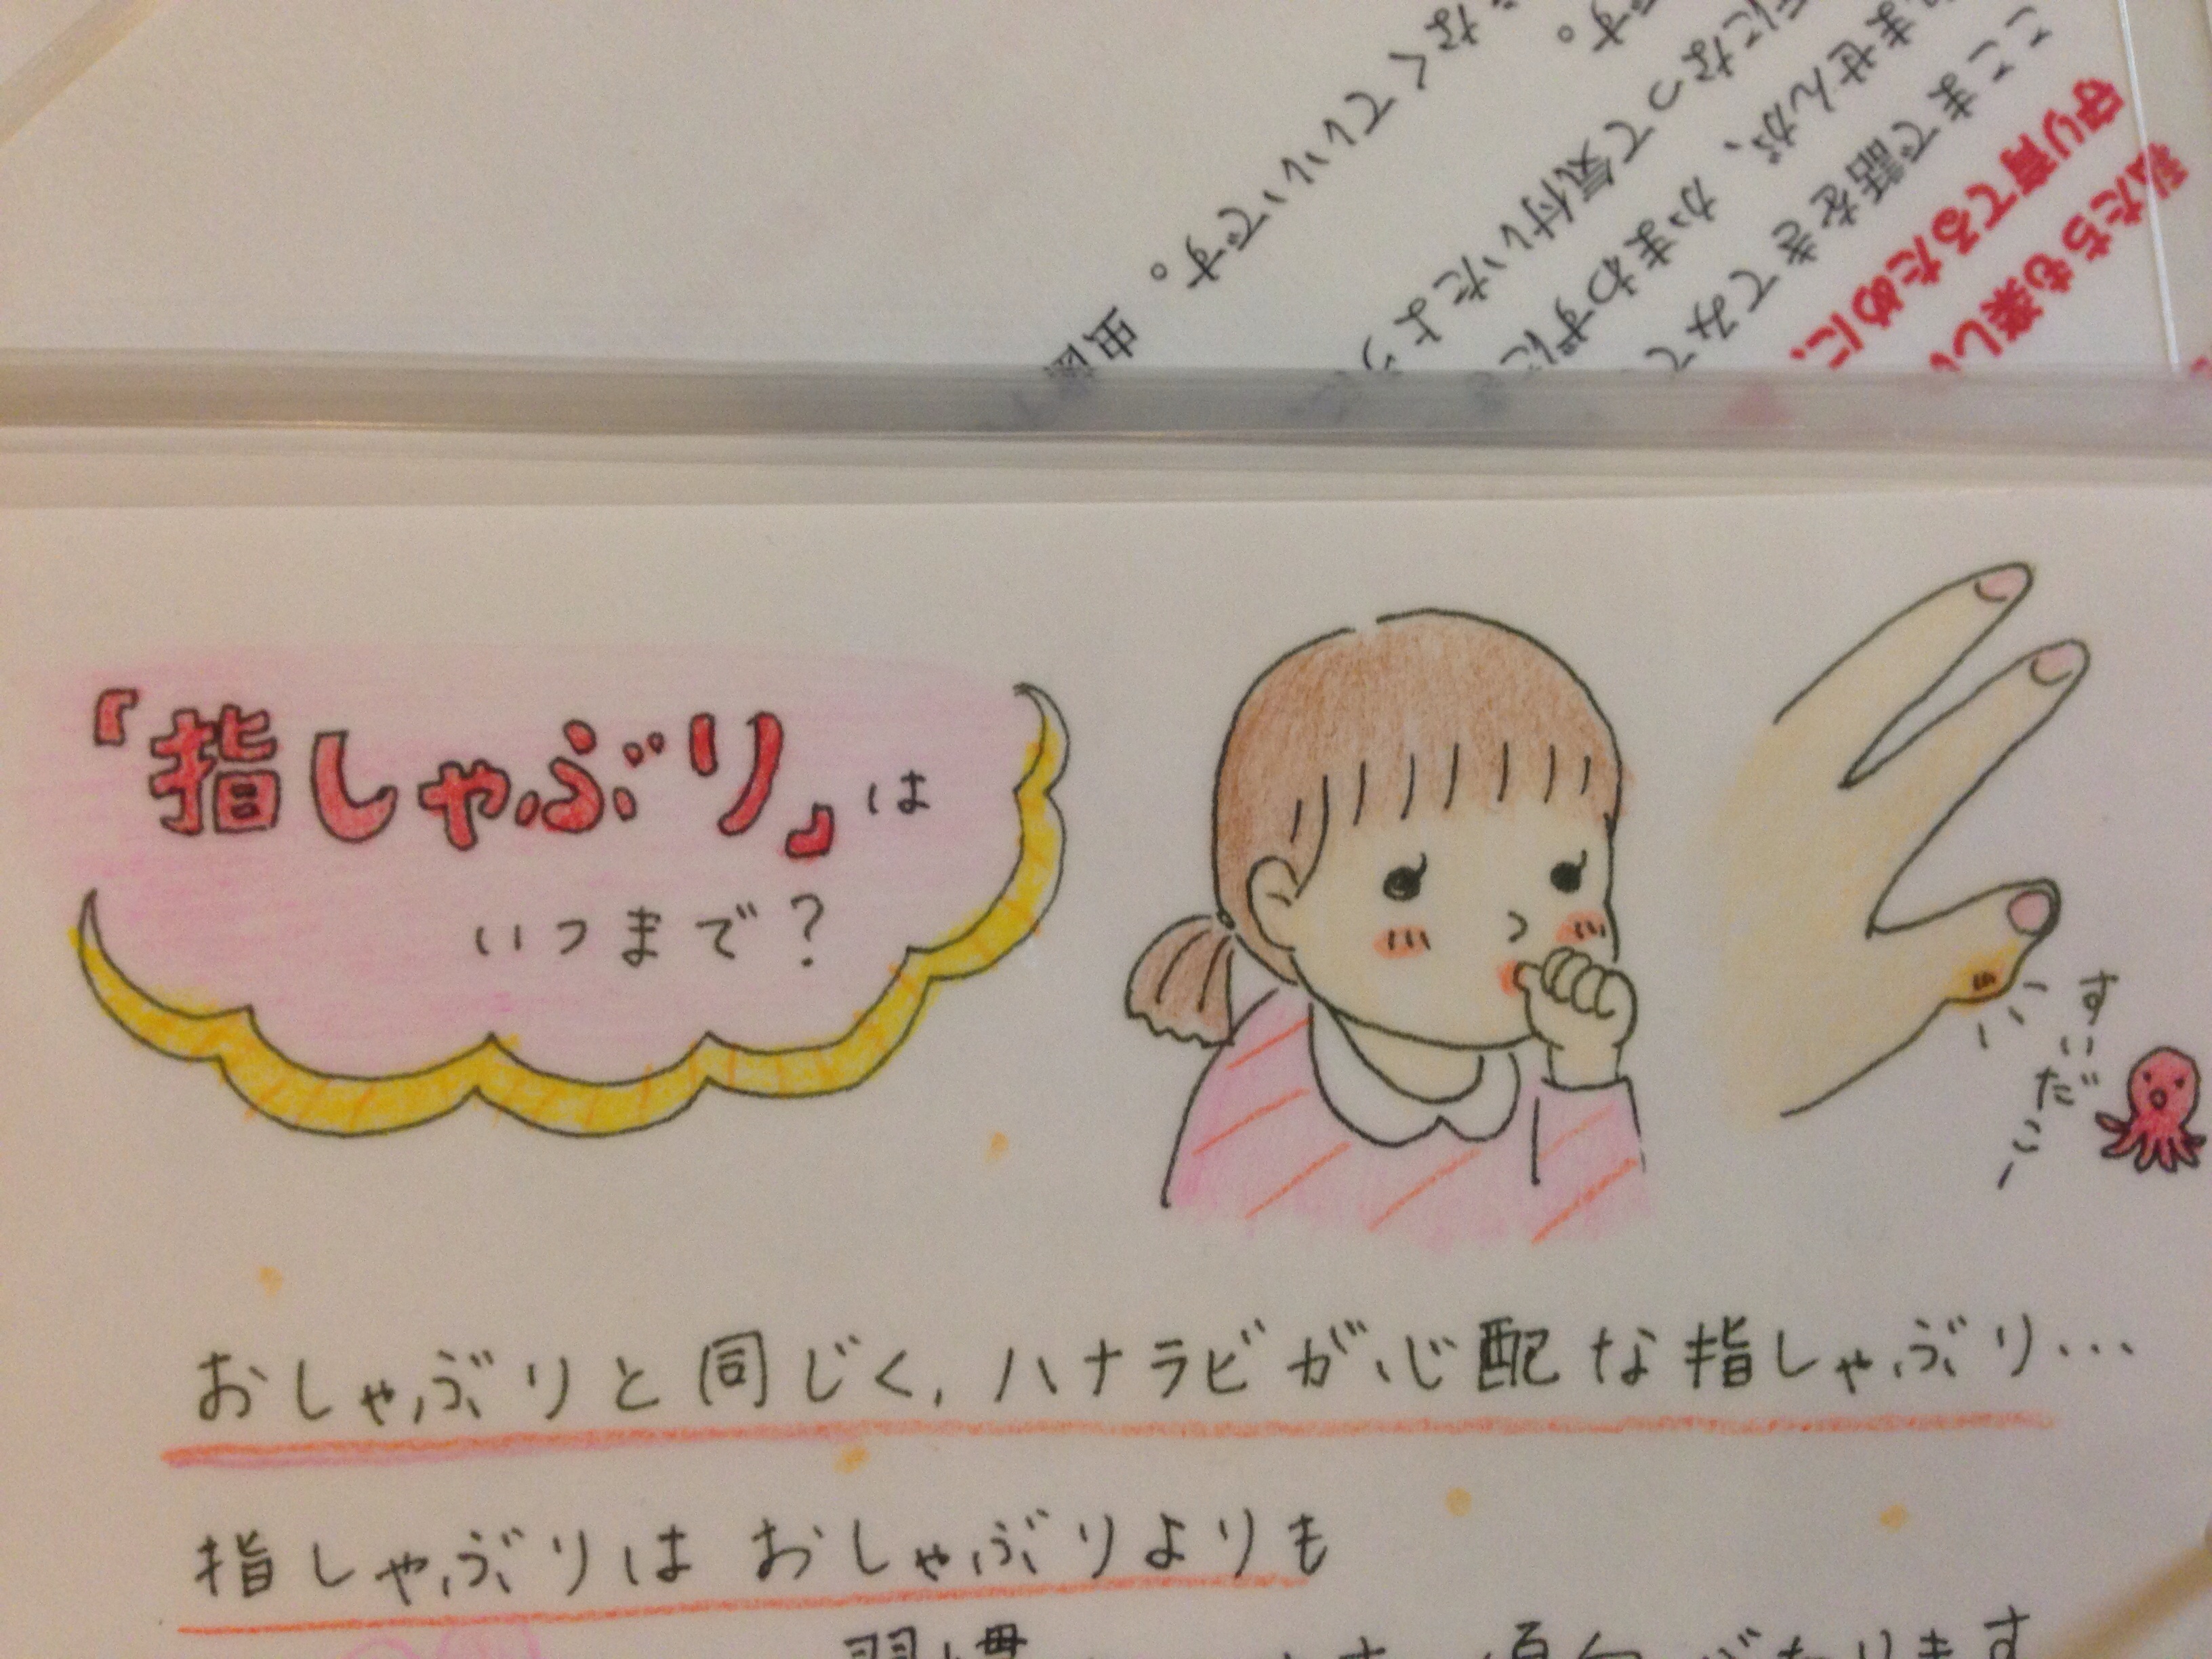 なくていいです。
虫歯
になって気付いたよう
ませんが、かまわずに
ここまで話をきてみて
守り育てるために、
私たちも楽し
『指しゃぶり』は
いつまで?
すいだこー
おしゃぶりと同じく、ハナラビが心配な指しゃぶり…
指しゃぶりは おしゃぶりよりも